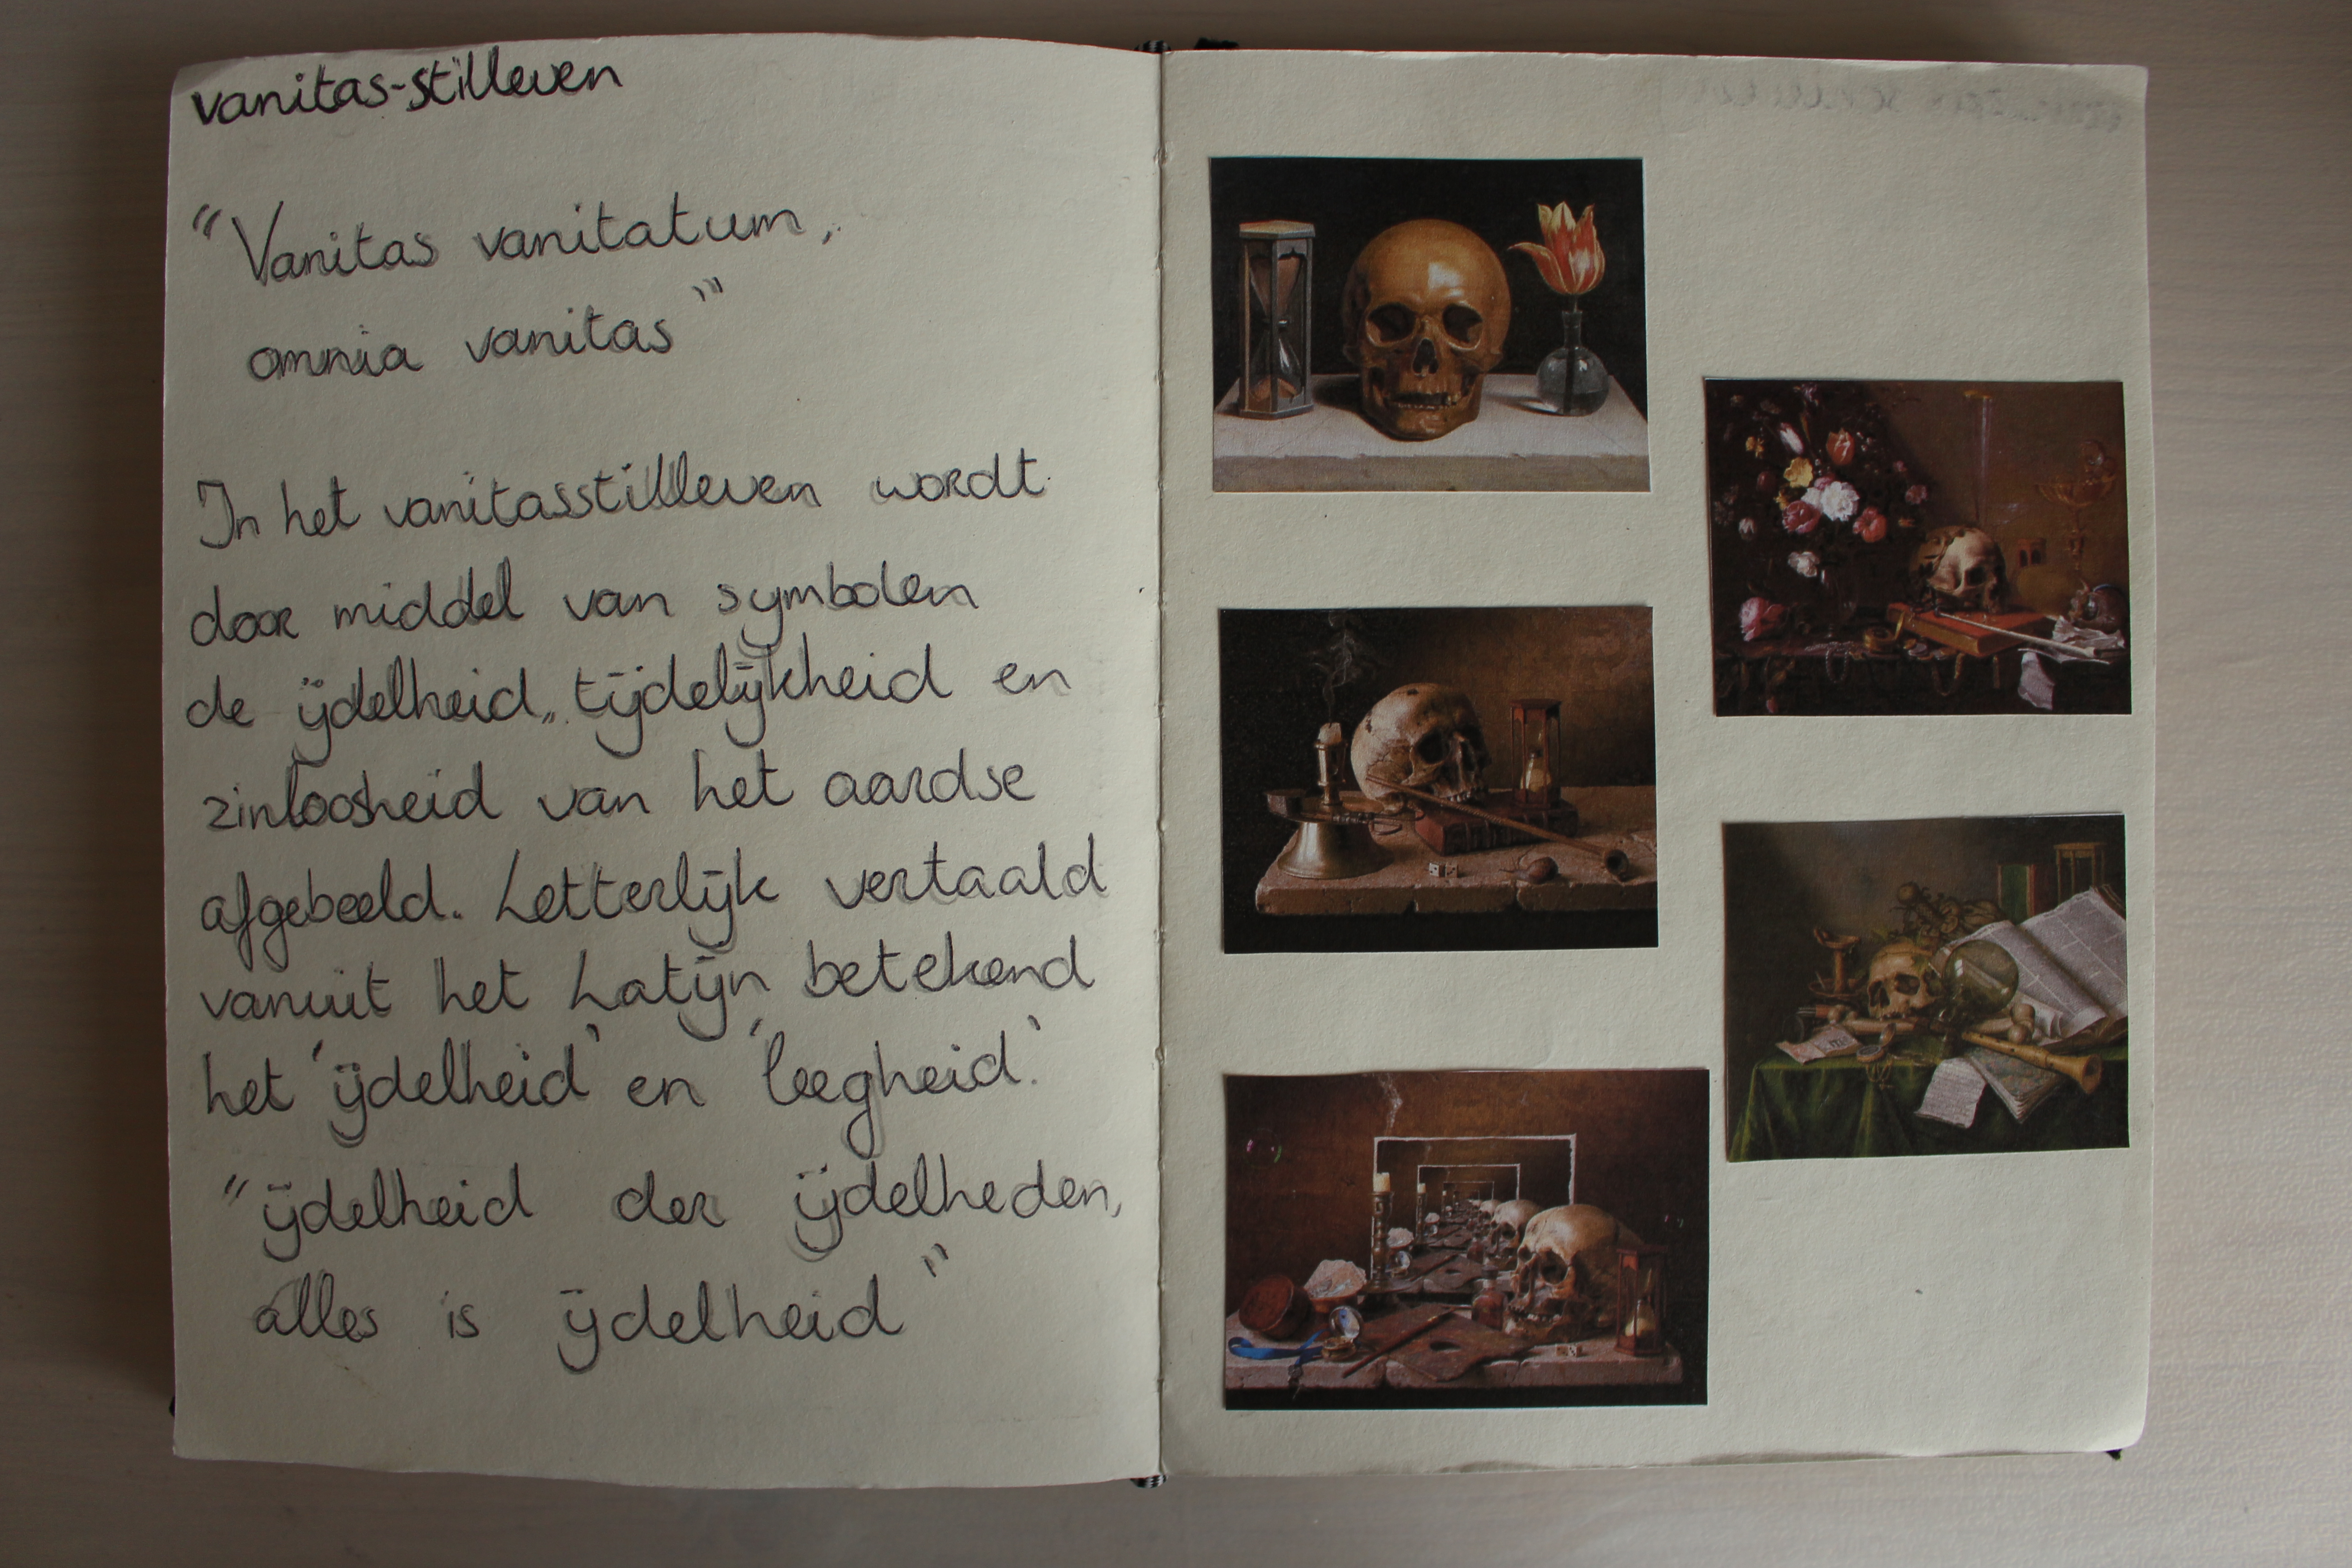 vanitas-stilleven
"Vanitas vanitatum,
omnia vanitas"
In het vanitasstilleven wordt
door middel van symbolen
de ijdelheid, tijdelijkheid en
zinloosheid van het aardse
afgebeeld. Letterlijk vertaald
vanuit het Latijn betekend
het 'ijdelheid' en 'leegheid.'
"ijdelheid der ijdelheden,
alles is ijdelheid"